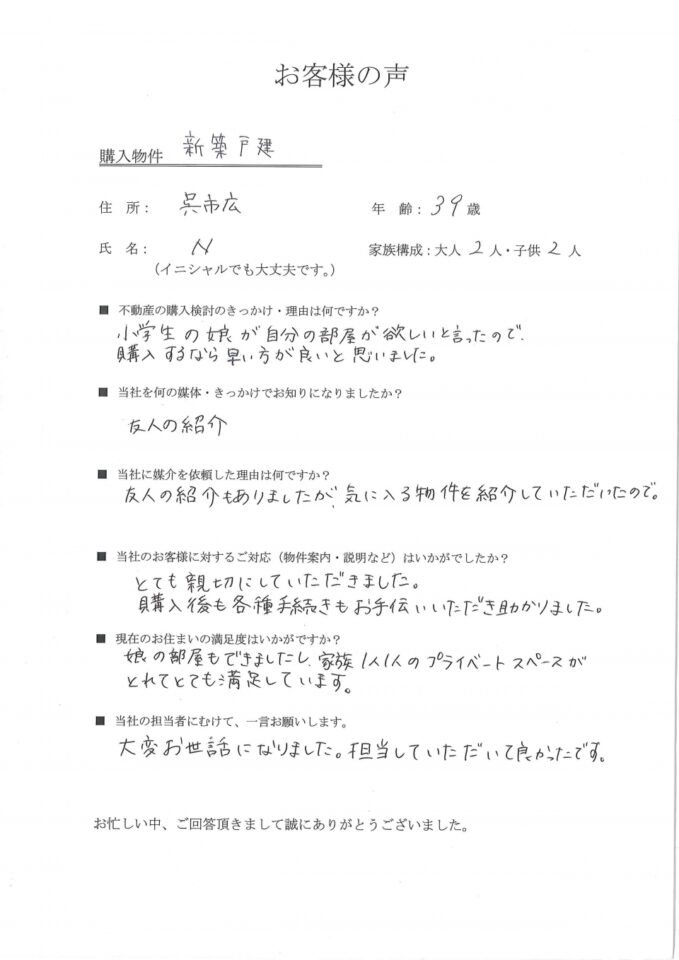 お客様の声
購入物件 新築戸建
住 所： 呉市広 年 齢：39歳
氏 名： N 家族構成：大人 2 人・子供 2 人
（イニシャルでも大丈夫です。）
■ 不動産の購入検討のきっかけ・理由は何ですか？
小学生の娘が自分の部屋が欲しいと言ったので、
購入するなら早い方が良いと思いました。
■ 当社を何の媒体・きっかけでお知りになりましたか？
友人の紹介
■ 当社に媒介を依頼した理由は何ですか？
友人の紹介もありましたが、気に入る物件を紹介していただいたので。
■ 当社のお客様に対するご対応（物件案内・説明など）はいかがでしたか？
とても親切にしていただきました。
購入後も各種手続きもお手伝いいただき助かりました。
■ 現在のお住まいの満足度はいかがですか？
娘の部屋もできましたし、家族1人1人のプライベートスペースが
とれてとても満足しています。
■ 当社の担当者にむけて、一言お願いします。
大変お世話になりました。担当していただいて良かったです。
お忙しい中、ご回答頂きまして誠にありがとうございました。